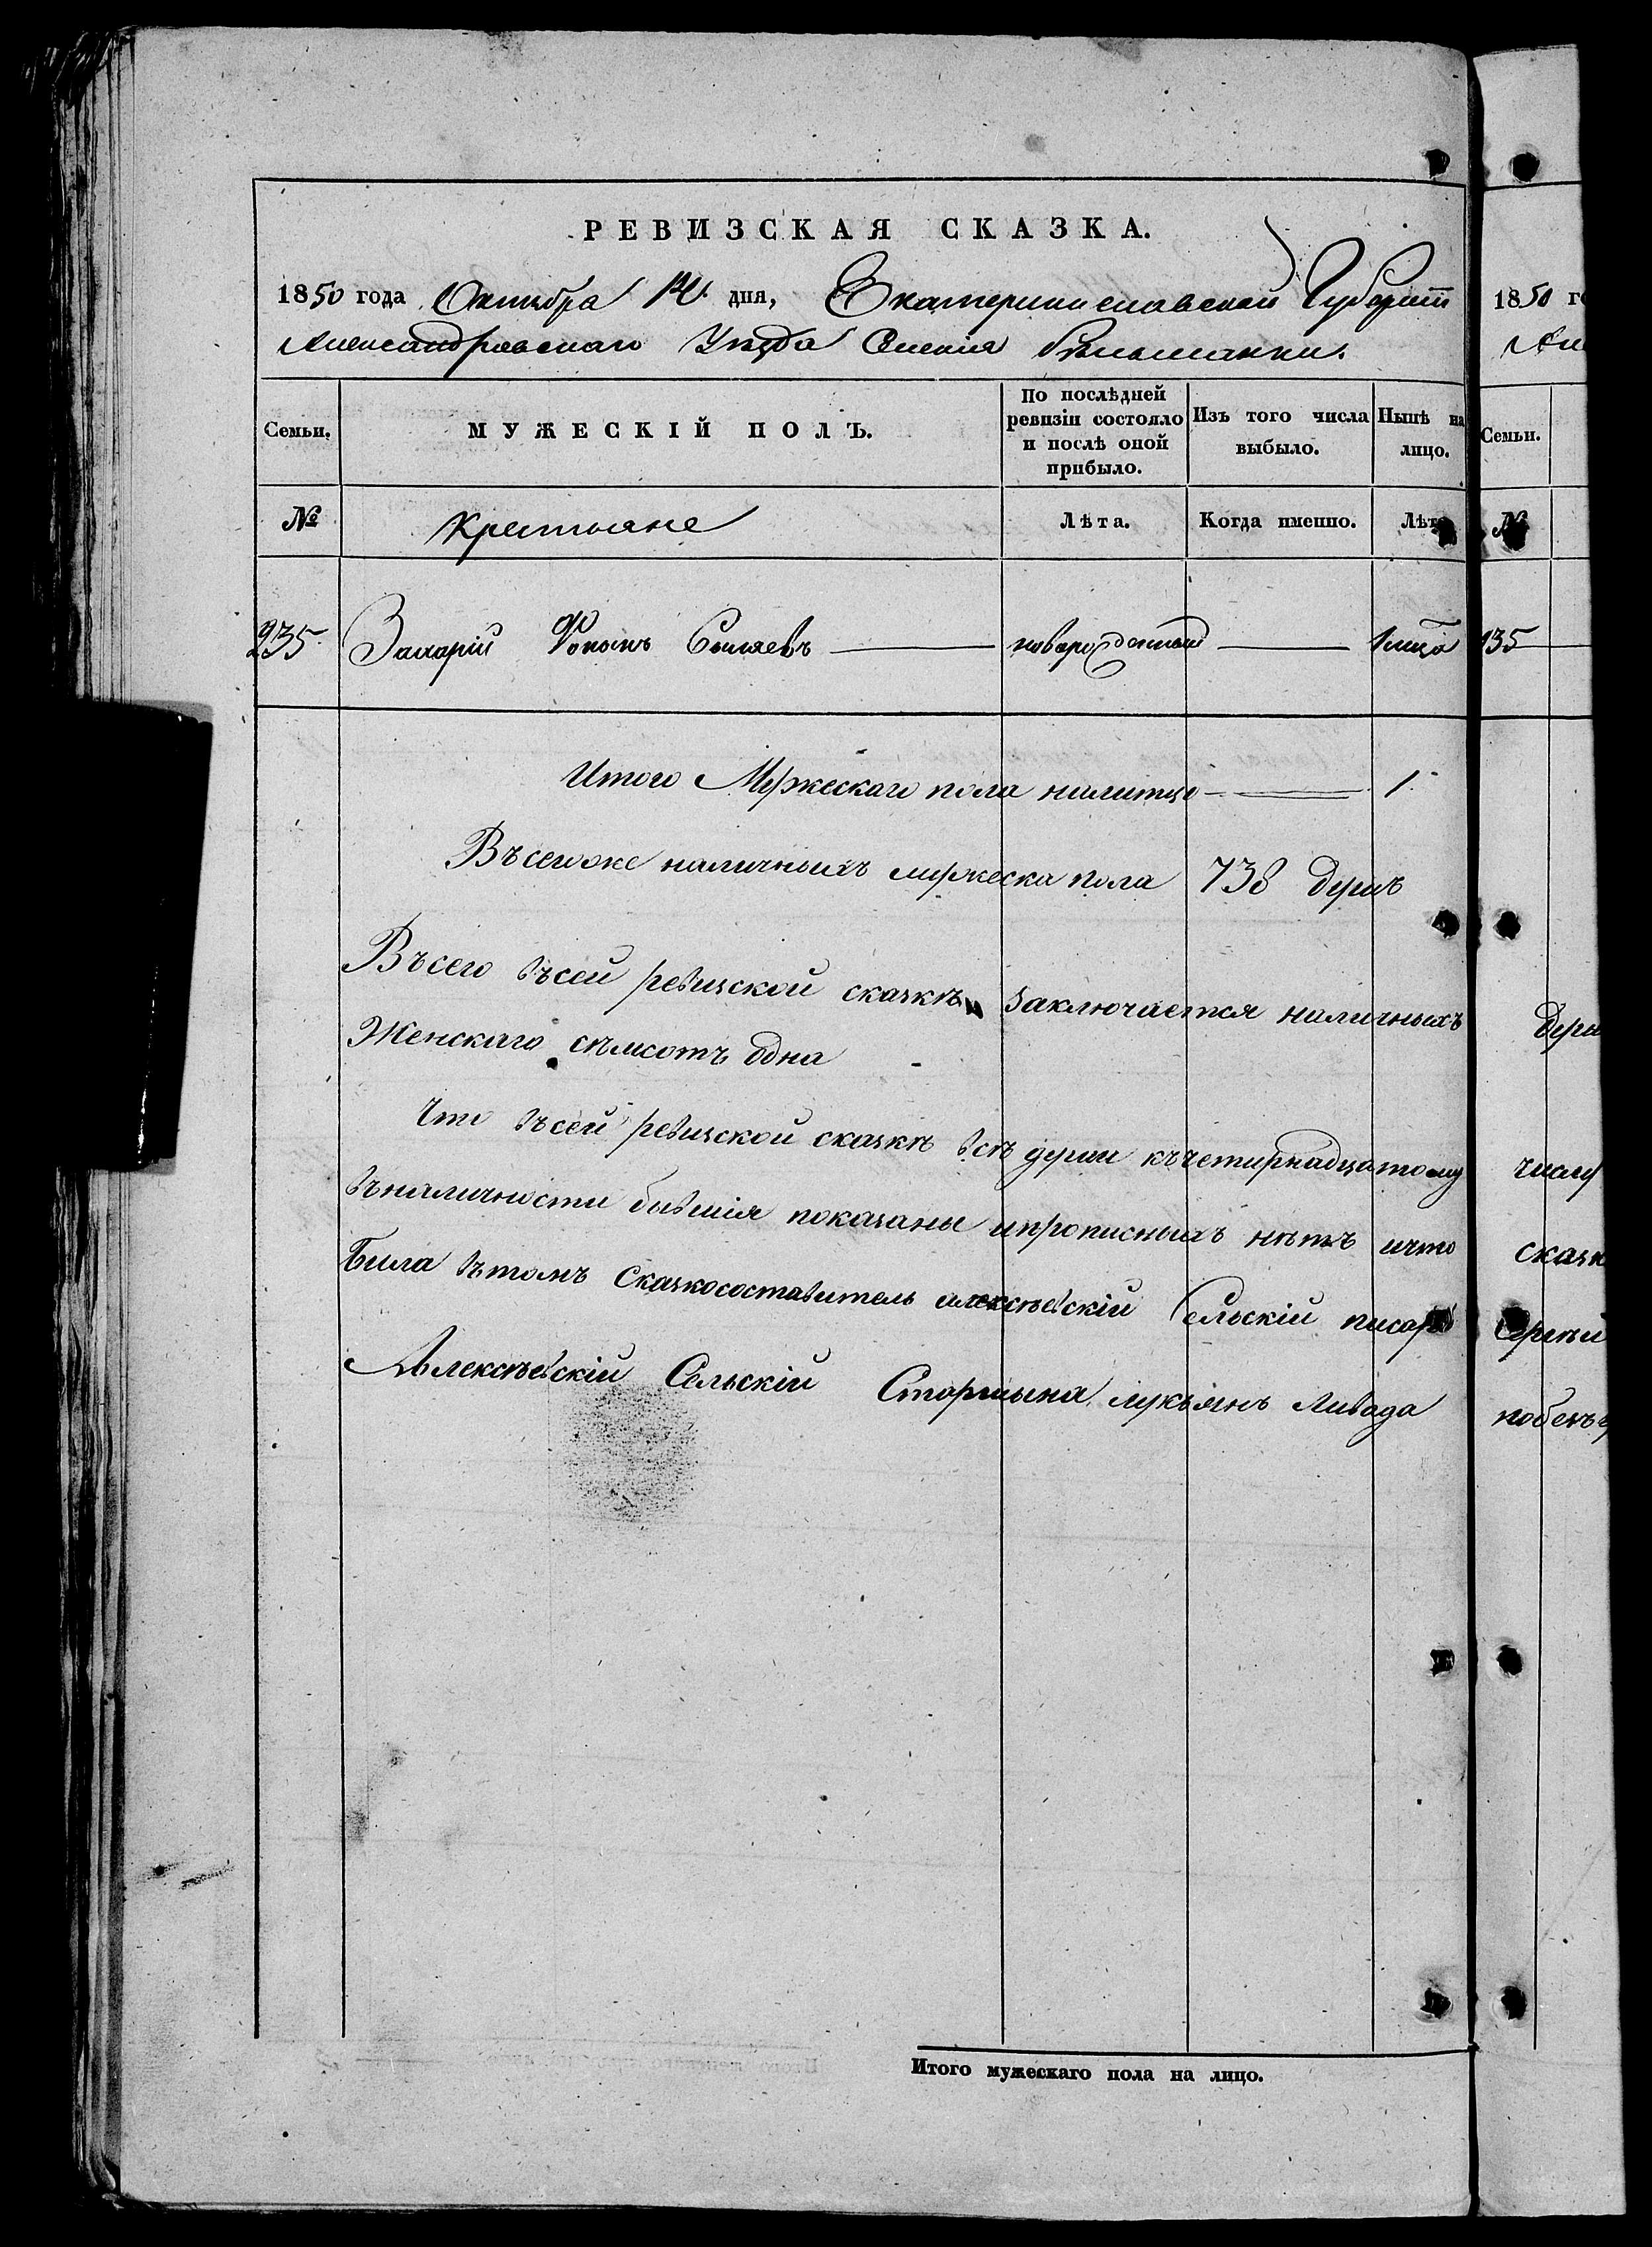 РЕВИЗСКАЯ СКАЗКА.
1850 года Октября 14 дня, Екатеринославской Губерніи
Александровскаго Уѣзда Селенія Бѣльманки.
Семьи.
МУЖЕСКІЙ ПОЛЪ.
По послѣдней ревизіи состояло и послѣ оной прибыло.
Изъ того числа выбыло.
Нынѣ на лицо.
№
Крестьяне
Лѣта.
Когда именно.
Лѣт
235 Захарій новорожденный
Итого Мужескаго пола налитцо 1
Въсегоже наличныхъ мужеска пола 738 душъ
Въсего въсей ревизской сказкѣ заключается наличныхъ
Женскаго сѣмсотъ одна
Что въсей ревизской сказкѣ всѣ души къчетирнадцатому
вналичности бывшія показаны ипрописныхъ нѣтъ ичто
Била втомъ Сказкосоставитель алексѣевскій Сельскій писарь
Алексѣевскій Сельскій Старшына лукьянъ Ливада
Итого мужескаго пола на лицо.
1850 го
Семьи.
№
135
душ
числу
сказк